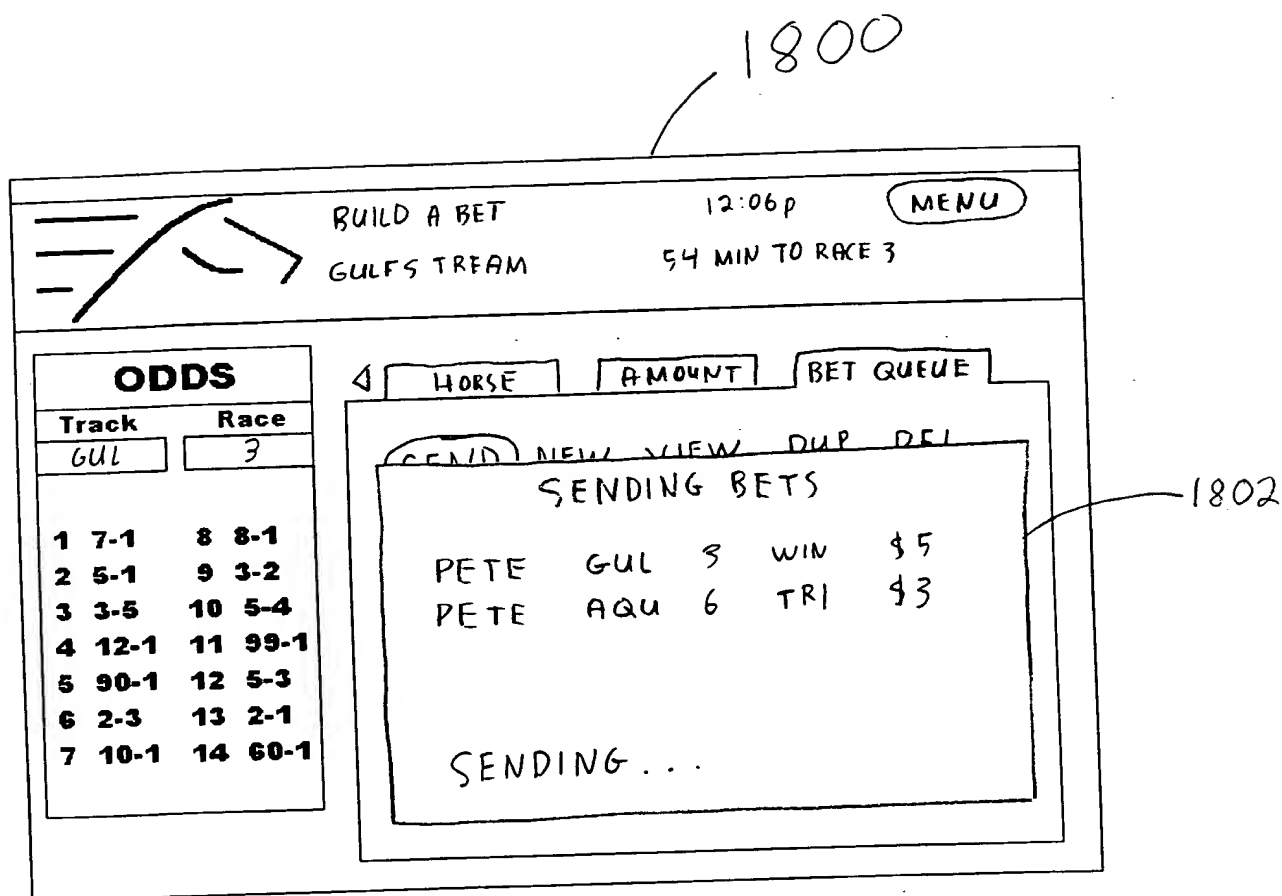 1800
BUILD A BET 12:06p MENU
GULFSTREAM 54 MIN TO RACE 3
ODDS
Track Race
GUL 3
1 7-1 8 8-1
2 5-1 9 3-2
3 3-5 10 5-4
4 12-1 11 99-1
5 90-1 12 5-3
6 2-3 13 2-1
7 10-1 14 60-1
HORSE AMOUNT BET QUEUE
SEND NEW VIEW DUP DEL
SENDING BETS
1802
PETE GUL 3 WIN $5
PETE AQU 6 TRI $3
SENDING...